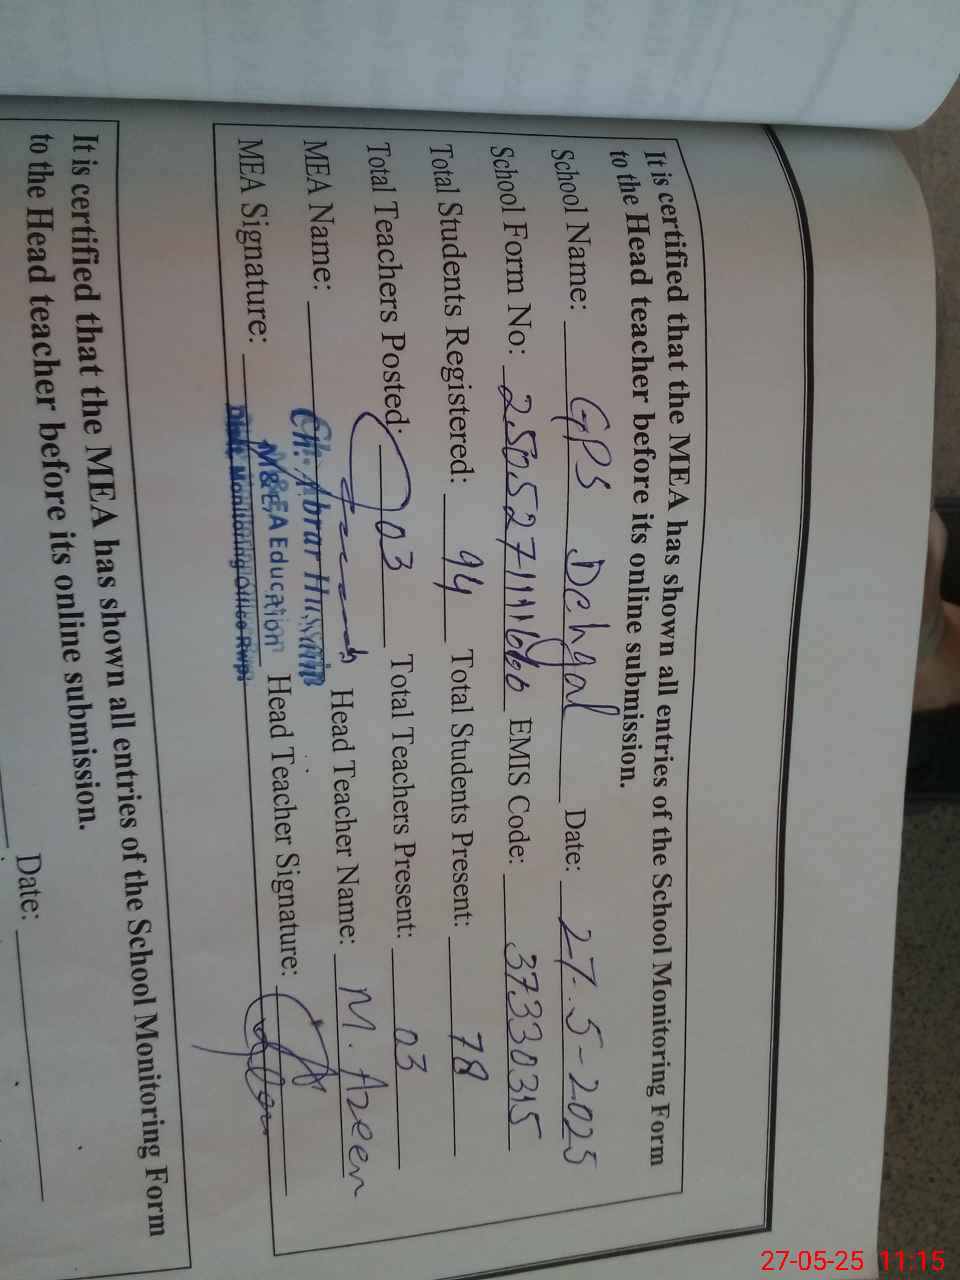 It is certified that the MEA has shown all entries of the School Monitoring Form
to the Head teacher before its online submission.
School Name: GPS Dehgal Date: 27-5-2025
School Form No: EMIS Code: 37330315
Total Students Registered: 94 Total Students Present: 78
Total Teachers Posted: 03 Total Teachers Present: 03
MEA Name: Ch. Abrar Hussain Head Teacher Name: M. Azeem
MEA Signature: M&EA Education Head Teacher Signature:
Distt. Monitoring Office Rwp.
It is certified that the MEA has shown all entries of the School Monitoring Form
to the Head teacher before its online submission.
Date:
27-05-25 11:15